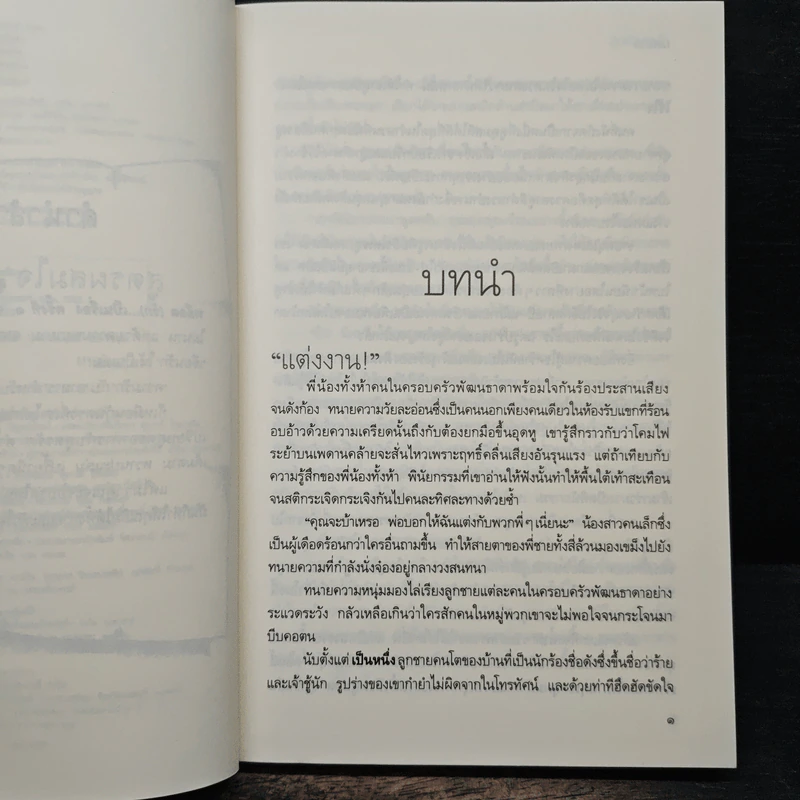 บทนำ
“แต่งงาน!”
พี่น้องทั้งห้าคนในครอบครัวพัฒนธาดาพร้อมใจกันร้องประสานเสียง
จนดังก้อง ทนายความวัยละอ่อนซึ่งเป็นคนนอกเพียงคนเดียวในห้องรับแขกที่ร้อน
อบอ้าวด้วยความเครียดนั้นถึงกับต้องยกมือขึ้นอุดหู เขารู้สึกราวกับว่าโคมไฟ
ระย้าบนเพดานคล้ายจะสั่นไหวเพราะฤทธิ์คลื่นเสียงอันรุนแรง แต่ถ้าเทียบกับ
ความรู้สึกของพี่น้องทั้งห้า พินัยกรรมที่เขาอ่านให้ฟังนั้นทำให้พื้นใต้เท้าสะเทือน
จนสติกระเจิดกระเจิงกันไปคนละทิศละทางด้วยซ้ำ
“คุณจะบ้าเหรอ พ่อบอกให้ฉันแต่งกับพวกพี่ๆ เนี่ยนะ” น้องสาวคนเล็กซึ่ง
เป็นผู้เดือดร้อนกว่าใครอื่นถามขึ้น ทำให้สายตาของพี่ชายทั้งสี่ล้วนมองเขม็งไปยัง
ทนายความที่กำลังนั่งจ๋องอยู่กลางวงสนทนา
ทนายความหนุ่มมองไล่เรียงลูกชายแต่ละคนในครอบครัวพัฒนธาดาอย่าง
ระแวดระวัง กลัวเหลือเกินว่าใครสักคนในหมู่พวกเขาจะไม่พอใจจนกระโจนมา
บีบคอตน
นับตั้งแต่ เป็นหนึ่ง ลูกชายคนโตของบ้านที่เป็นนักร้องชื่อดังซึ่งขึ้นชื่อว่าร้าย
และเจ้าชู้นัก รูปร่างของเขากำยำไม่ผิดจากในโทรทัศน์ และด้วยท่าทีฮึดฮัดขัดใจ
๑